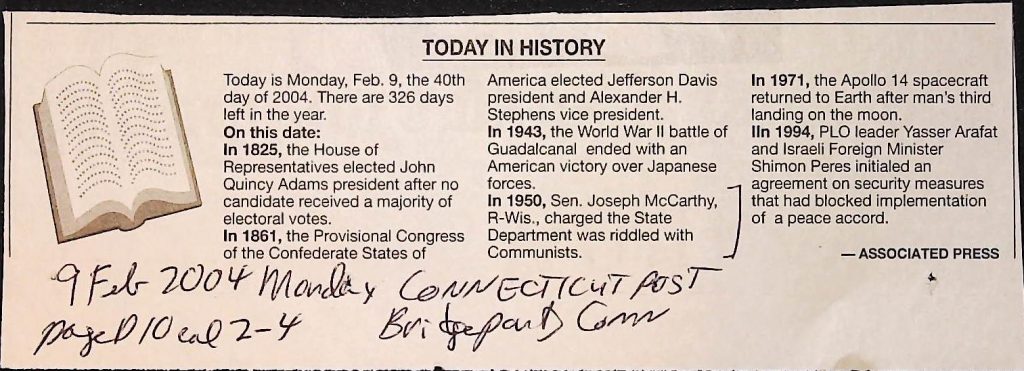 TODAY IN HISTORY
Today is Monday, Feb. 9, the 40th
day of 2004. There are 326 days
left in the year.
On this date:
In 1825, the House of
Representatives elected John
Quincy Adams president after no
candidate received a majority of
electoral votes.
In 1861, the Provisional Congress
of the Confederate States of
America elected Jefferson Davis
president and Alexander H.
Stephens vice president.
In 1943, the World War II battle of
Guadalcanal ended with an
American victory over Japanese
forces.
In 1950, Sen. Joseph McCarthy,
R-Wis., charged the State
Department was riddled with
Communists.
In 1971, the Apollo 14 spacecraft
returned to Earth after man's third
landing on the moon.
IIn 1994, PLO leader Yasser Arafat
and Israeli Foreign Minister
Shimon Peres initialed an
agreement on security measures
that had blocked implementation
of a peace accord.
— ASSOCIATED PRESS
9 Feb 2004 Monday CONNECTICUT POST
page D10 col 2-4 Bridgeport Conn